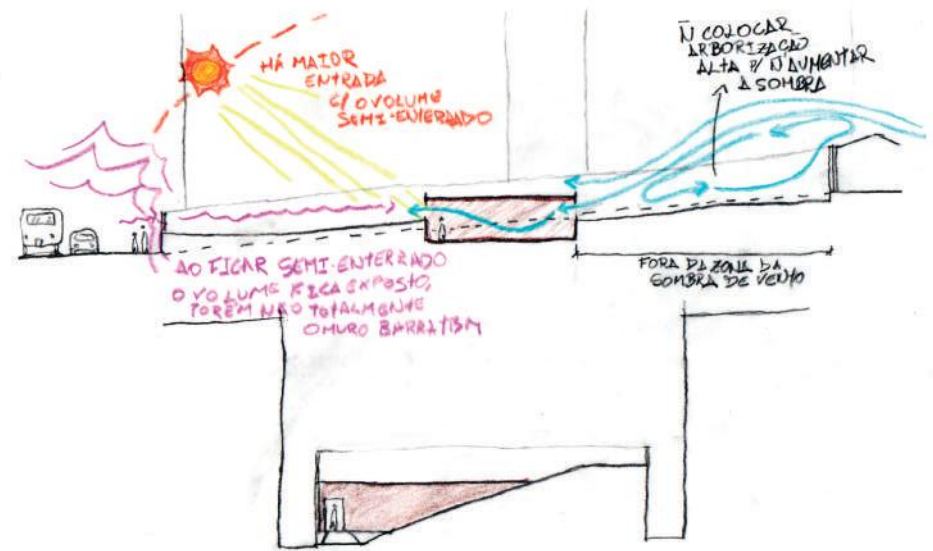 HÁ MAIOR
ENTRADA
C/ O VOLUME
SEMI-ENTERRADO
Ñ COLOCAR
ARBORIZAÇÃO
ALTA P/ Ñ AUMENTAR
A SOMBRA
AO FICAR SEMI-ENTERRADO
O VOLUME FICA EXPOSTO,
PORÉM NÃO TOTALMENTE
O MURO BARRA TBM
FORA DA ZONA DA
SOMBRA DE VENTO